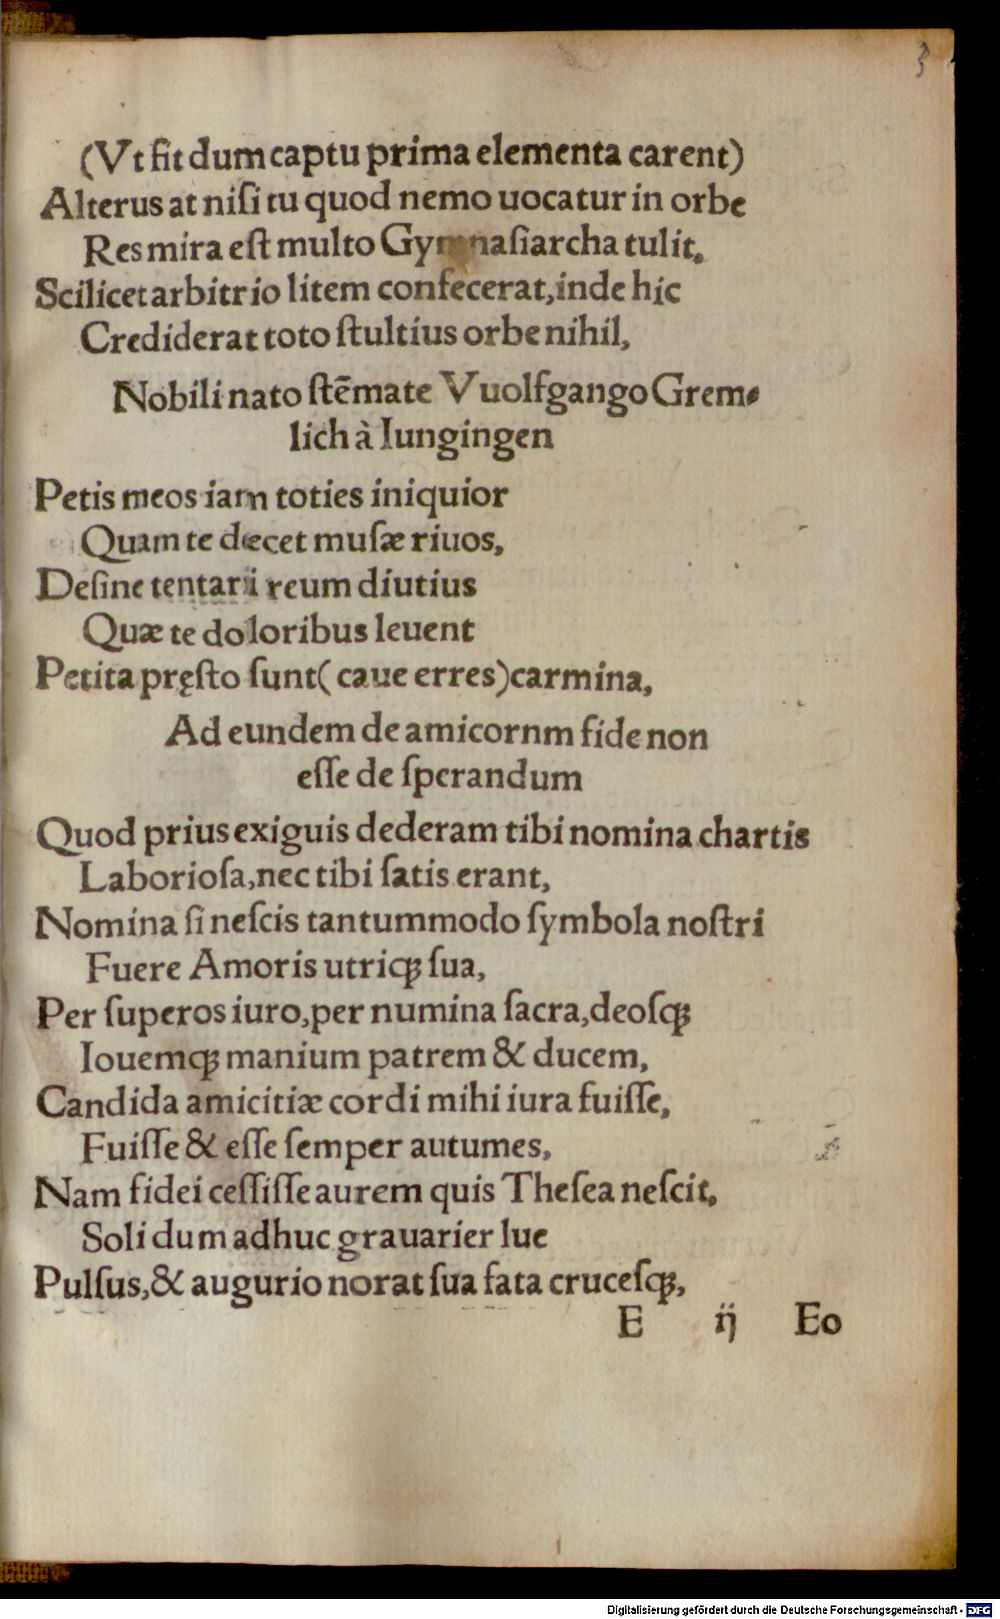 3
(Vt fit dum captu prima elementa carent)
Alterus at niſi tu quod nemo uocatur in orbe
Res mira eſt multo Gymnaſiarcha tulit.
Scilicet arbitrio litem confecerat, inde hic
Crediderat toto ſtultius orbe nihil,
Nobili nato ſtēmate Vuolfgango Grem⸗
lich à Iungingen
Petis meos iam toties iniquior
Quam te decet muſæ riuos,
Deſine tentari reum diutius
Quæ te doloribus leuent
Petita pręſto ſunt( caue erres)carmina,
Ad eundem de amicornm fide non
eſſe de ſperandum
Quod prius exiguis dederam tibi nomina chartis
Laborioſa, nec tibi ſatis erant,
Nomina ſi neſcis tantummodo ſymbola noſtri
Fuere Amoris utriqꝫ ſua,
Per ſuperos iuro, per numina ſacra, deoſqꝫ
Iouemqꝫ manium patrem & ducem,
Candida amicitiæ cordi mihi iura fuiſſe,
Fuiſſe & eſſe ſemper autumes,
Nam fidei ceſſiſſe aurem quis Theſea neſcit,
Soli dum adhuc grauarier lue
Pulſus, & augurio norat ſua fata cruceſqꝫ,
E ij Eo
Digitalisierung gefördert durch die Deutsche Forschungsgemeinschaft - DFG